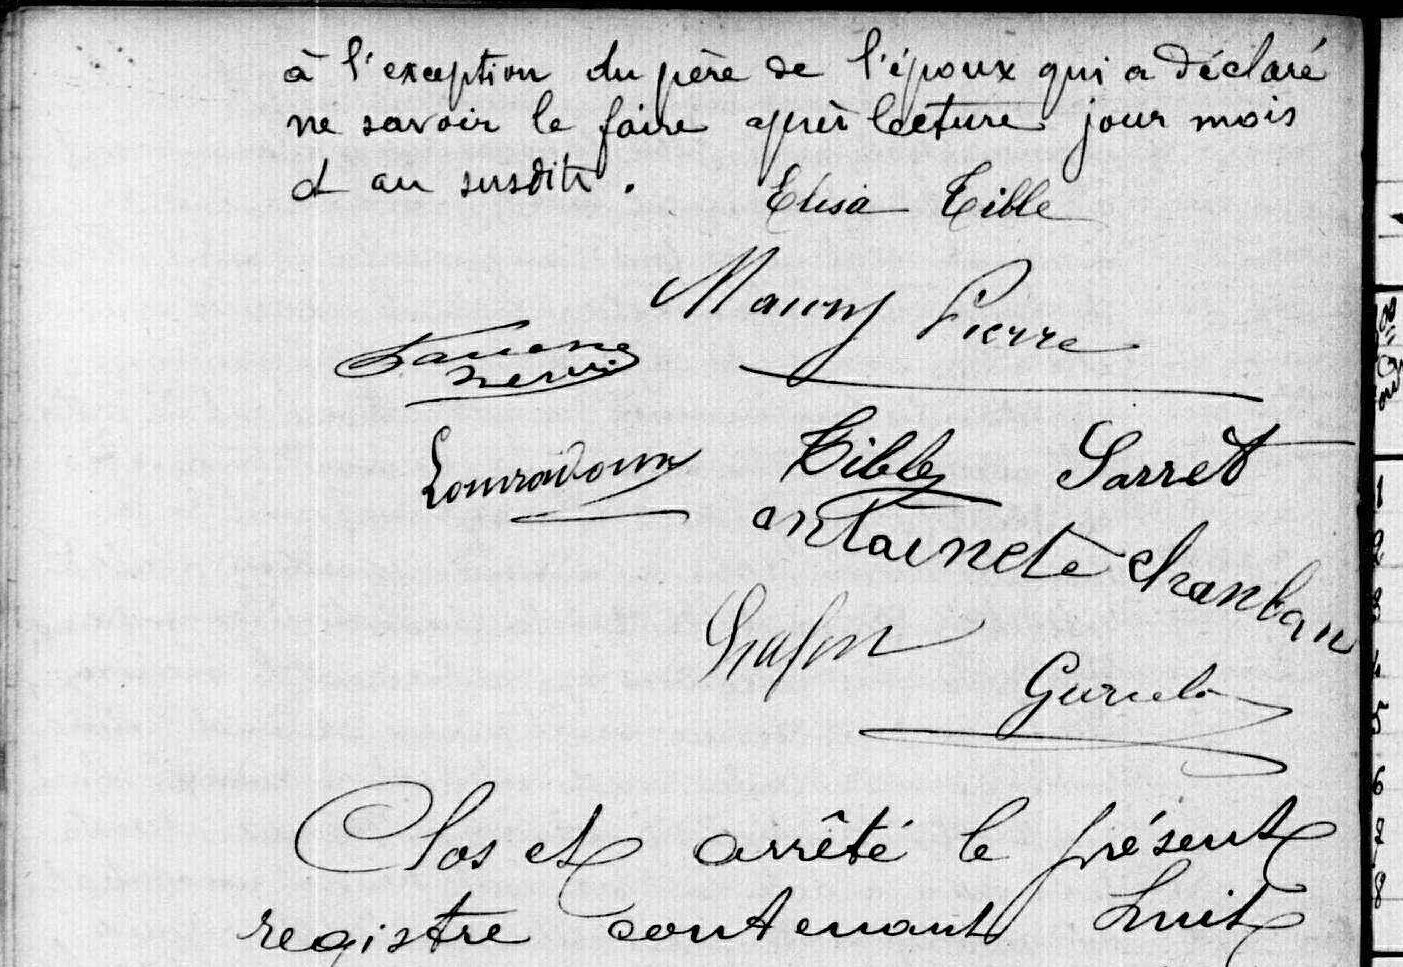 à l'exception du père de l'époux qui a déclaré
ne savoir le faire après lecture jour mois
et an susdits.
Elisa Tible
Maury Pierre
Henri
Louradoux Tible Sarret
antoinete
Clos et arrêté le présent
registre contenant huit
1
2
3
4
5
6
7
8